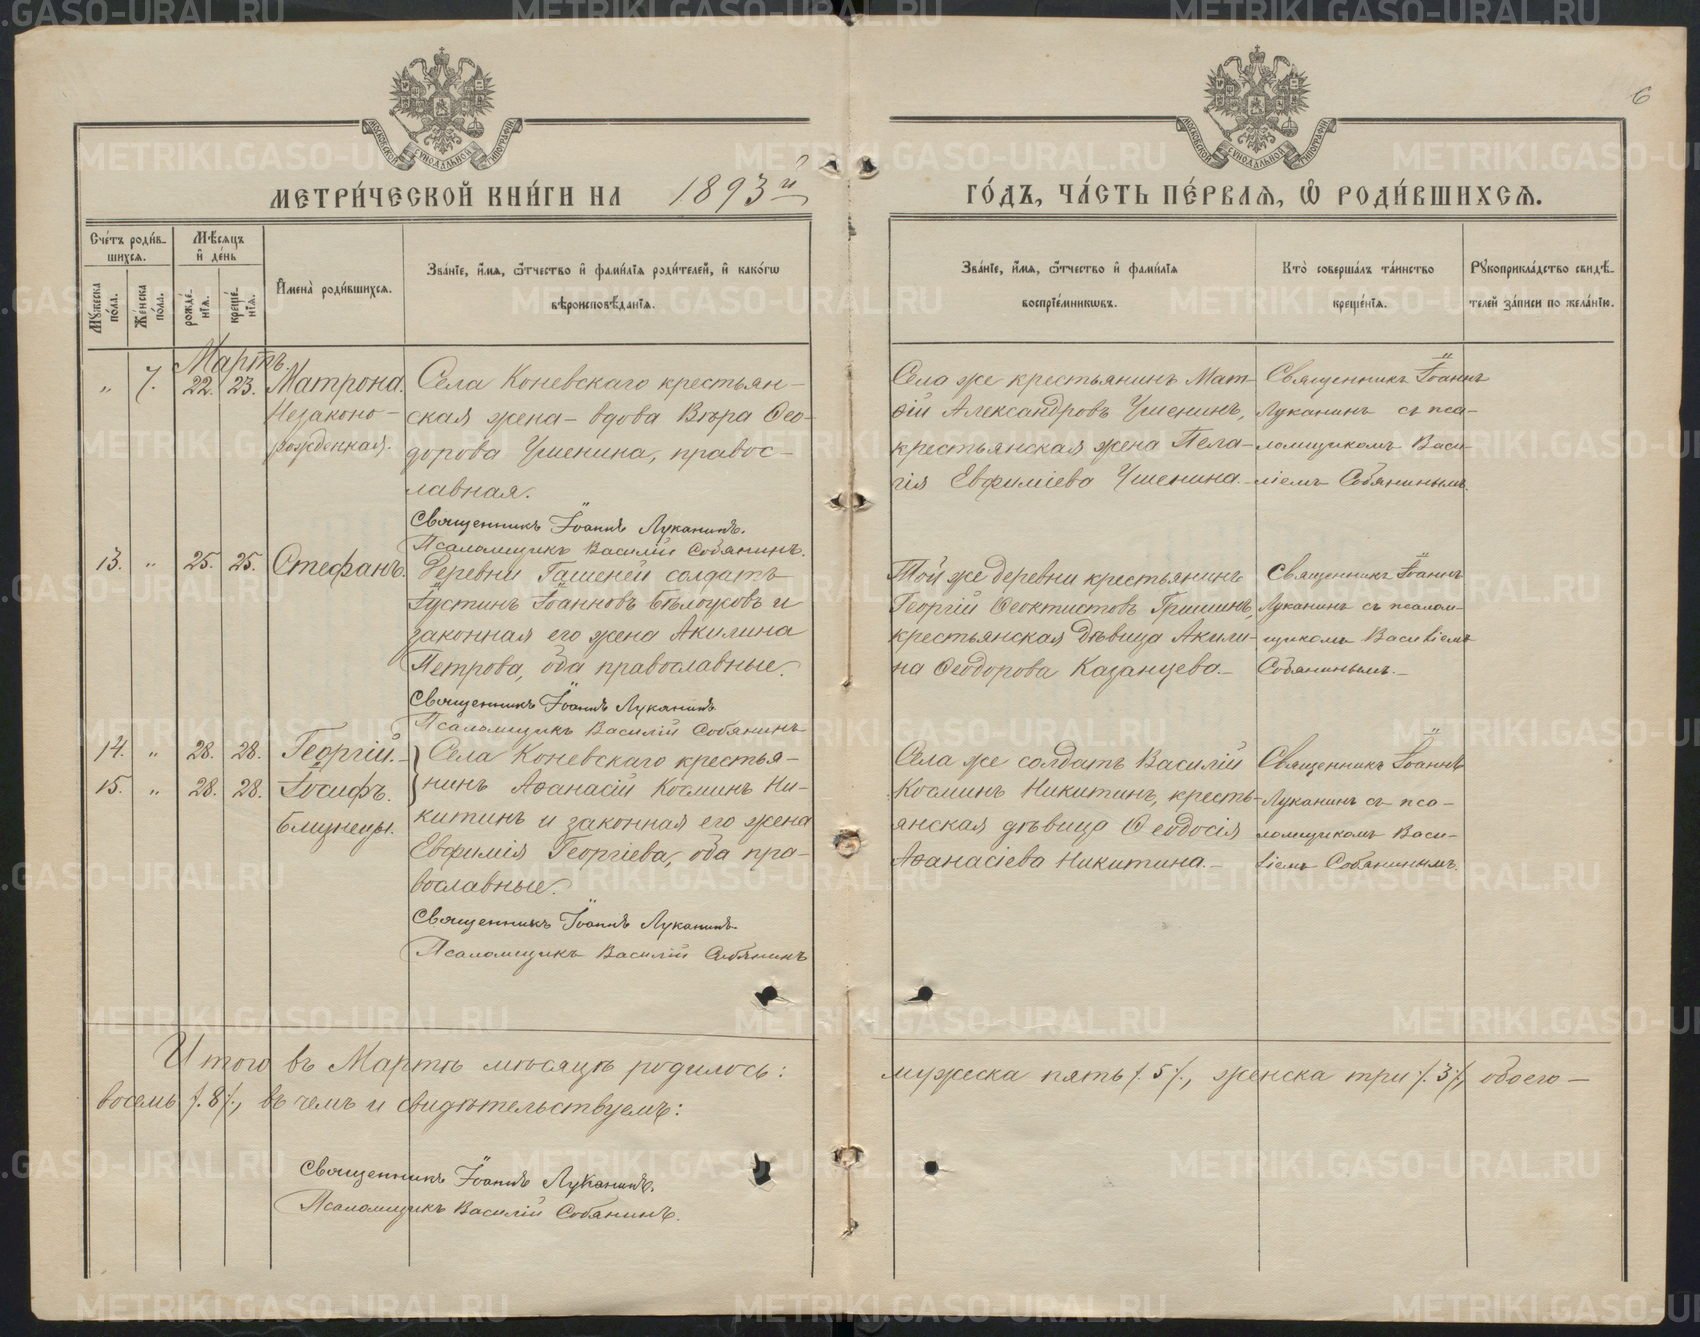 6
МЕТРИ́ЧЕСКОЙ КНИ́ГИ НА 1893й
ГО́ДЪ, ЧА́СТЬ ПЕ́РВАѦ, Ѽ РОДИ́ВШИХСѦ.
Сче́тъ роди́вшихсѧ.
Мꙋ́жеска по́ла.
Же́нска по́ла.
Мѣ́сѧцъ и҆ де́нь
рожде́нїѧ.
креще́нїѧ.
И҆мена̀ роди́вшихсѧ.
Зва́нїе, и҆́мѧ, ѻ҆́тчество и҆ фами́лїѧ роди́телей, и҆ како́гѡ
вѣроисповѣ́данїѧ.
Зва́нїе, и҆́мѧ, ѻ҆́тчество и҆ фами́лїѧ
воспрїе́мникѡвъ.
Кто̀ соверша́лъ та́инство
креще́нїѧ.
Рꙋкоприкла́дство свидѣ́-
телей за́писи по жела́нїю.
Мартъ.
„ 7. 22. 23. Матрона.
Незаконо-
рожденная.
Села Коневскаго крестьян-
ская жена - вдова Вѣра Ѳео-
дорова Ушенина, правос-
лавная.
Священникъ Іоаннъ Луканинъ.
Псаломщикъ Василій Собянинъ.
Села же крестьянинъ Мат-
ѳій Александровъ Ушенинъ,
крестьянская жена Пела-
гія Евфиміева Ушенина.-
Священникъ Іоаннъ
Луканинъ съ пса-
ломщикомъ Васи-
ліемъ Собянинымъ.
13. „ 25. 25. Стефанъ.
Деревни Гашеней солдатъ
Іустинъ Іоанновъ Бѣлоусовъ и
законная его жена Акилина
Петрова, оба православные.
Священникъ Іоаннъ Луканинъ
Псаломщикъ Василій Собянинъ
Той же деревни крестьянинъ
Георгій Ѳеоктистовъ Гришинъ,
крестьянская дѣвица Акили-
на Ѳеодорова Казанцева.-
Священникъ Іоаннъ
Луканинъ съ псалом-
щикомъ Василіемъ
Собянинымъ.-
14. „ 28. 28. Георгій.-
15. „ 28. 28. Іосифъ.
Близнецы.
Села Коневскаго крестья-
нинъ Аѳанасій Косминъ Ни-
китинъ и законная его жена
Евфимія Георгіева, оба пра-
вославные.
Священникъ Іоаннъ Луканинъ.
Псаломщикъ Василій Собянинъ
Села же солдатъ Василій
Косминъ Никитинъ, кресть-
янская дѣвица Ѳеодосія
Аѳанасіева Никитина.-
Священникъ Іоаннъ
Луканинъ съ пса-
ломщикомъ Васи-
ліемъ Собянинымъ.
Итого въ Мартѣ мѣсяцѣ родилось: мужеска пять /.5/., женска три /.3/., обоего -
восемь /.8/., въ чемъ и свидѣтельствуемъ:
Священникъ Іоаннъ Луканинъ.
Псаломщикъ Василій Собянинъ.
METRIKI.GASO-URAL.RU